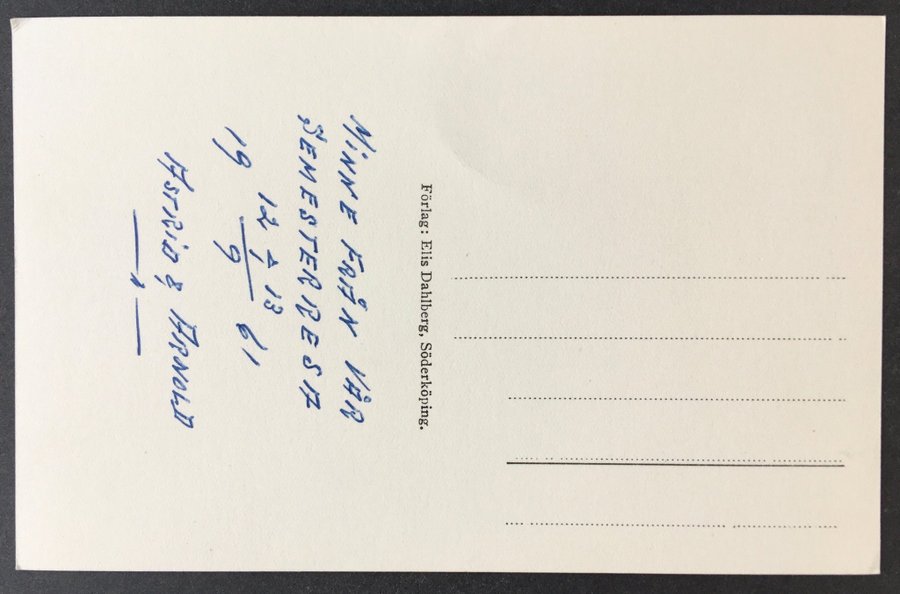 MINNE FRÅN VÅR
SEMESTERRESA
19 12 å 13/9 61
ASTRID & ARNOLD
Förlag: Elis Dahlberg, Söderköping.